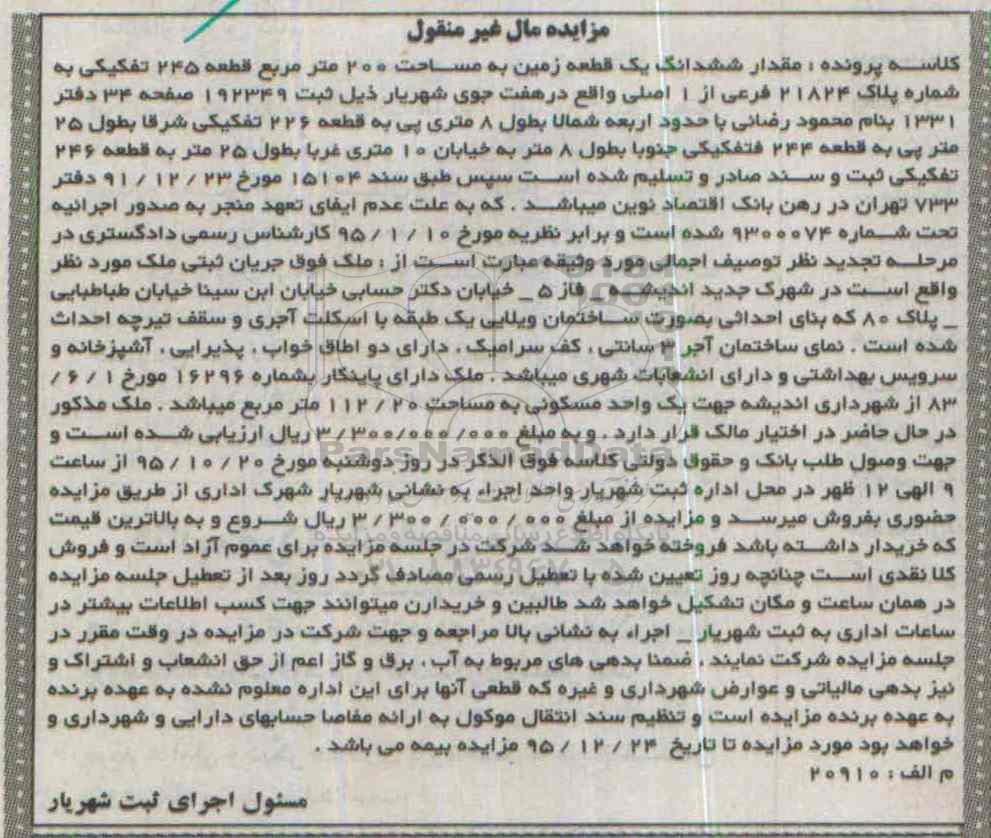 مزایده مال غیر منقول
کلاسه پرونده : مقدار ششدانگ یک قطعه زمین به مساحت ۲۰۰ متر مربع قطعه ۲۴۵ تفکیکی به
شماره پلاک ۲۱۸۲۴ فرعی از ۱ اصلی واقع درهفت جوی شهریار ذیل ثبت ۱۹۲۳۴۹ صفحه ۳۴ دفتر
۱۳۳۱ بنام محمود رضائی با حدود اربعه شمالا بطول ۸ متری پی به قطعه ۲۲۶ تفکیکی شرقا بطول ۲۵
متر پی به قطعه ۲۴۴ فتفکیکی جنوبا بطول ۸ متر به خیابان ۱۰ متری غربا بطول ۲۵ متر به قطعه ۲۴۶
تفکیکی ثبت و سند صادر و تسلیم شده است سپس طبق سند ۱۵۱۰۴ مورخ ۲۳ / ۱۲ / ۹۱ دفتر
۷۳۳ تهران در رهن بانک اقتصاد نوین میباشد . که به علت عدم ایفای تعهد منجر به صدور اجرائیه
تحت شماره ۹۳۰۰۰۷۴ شده است و برابر نظریه مورخ ۱۰ / ۱ / ۹۵ کارشناس رسمی دادگستری در
مرحله تجدید نظر توصیف اجمالی مورد وثیقه عبارت است از : ملک فوق جریان ثبتی ملک مورد نظر
واقع است در شهرک جدید اندیشه _ فاز ۵ _ خیابان دکتر حسابی خیابان ابن سینا خیابان طباطبایی
_ پلاک ۸۰ که بنای احداثی بصورت ساختمان ویلایی یک طبقه با اسکلت آجری و سقف تیرچه احداث
شده است . نمای ساختمان آجر ۳ سانتی ، کف سرامیک ، دارای دو اطاق خواب ، پذیرایی ، آشپزخانه و
سرویس بهداشتی و دارای انشعابات شهری میباشد . ملک دارای پاینکار بشماره ۱۶۲۹۶ مورخ ۱ / ۶ /
۸۳ از شهرداری اندیشه جهت یک واحد مسکونی به مساحت ۲۰ / ۱۱۲ متر مربع میباشد . ملک مذکور
در حال حاضر در اختیار مالک قرار دارد . و به مبلغ ۳/۳۰۰/۰۰۰/۰۰۰ ریال ارزیابی شده است و
جهت وصول طلب بانک و حقوق دولتی کلاسه فوق الذکر در روز دوشنبه مورخ ۲۰ / ۱۰ / ۹۵ از ساعت
۹ الهی ۱۲ ظهر در محل اداره ثبت شهریار واحد اجراء به نشانی شهریار شهرک اداری از طریق مزایده
حضوری بفروش میرسد و مزایده از مبلغ ۰۰۰ / ۰۰۰ / ۳۰۰ / ۳ ریال شروع و به بالاترین قیمت
که خریدار داشته باشد فروخته خواهد شد شرکت در جلسه مزایده برای عموم آزاد است و فروش
کلا نقدی است چنانچه روز تعیین شده با تعطیل رسمی مصادف گردد روز بعد از تعطیل جلسه مزایده
در همان ساعت و مکان تشکیل خواهد شد طالبین و خریدارن میتوانند جهت کسب اطلاعات بیشتر در
ساعات اداری به ثبت شهریار _ اجراء به نشانی بالا مراجعه و جهت شرکت در مزایده در وقت مقرر در
جلسه مزایده شرکت نمایند ، ضمنا بدهی های مربوط به آب ، برق و گاز اعم از حق انشعاب و اشتراک و
نیز بدهی مالیاتی و عوارض شهرداری و غیره که قطعی آنها برای این اداره معلوم نشده به عهده برنده
به عهده برنده مزایده است و تنظیم سند انتقال موکول به ارائه مفاصا حسابهای دارایی و شهرداری و
خواهد بود مورد مزایده تا تاریخ ۲۴ / ۱۲ / ۹۵ مزایده بیمه می باشد .
م الف : ۲۰۹۱۰
مسئول اجرای ثبت شهریار
ParsNamadData